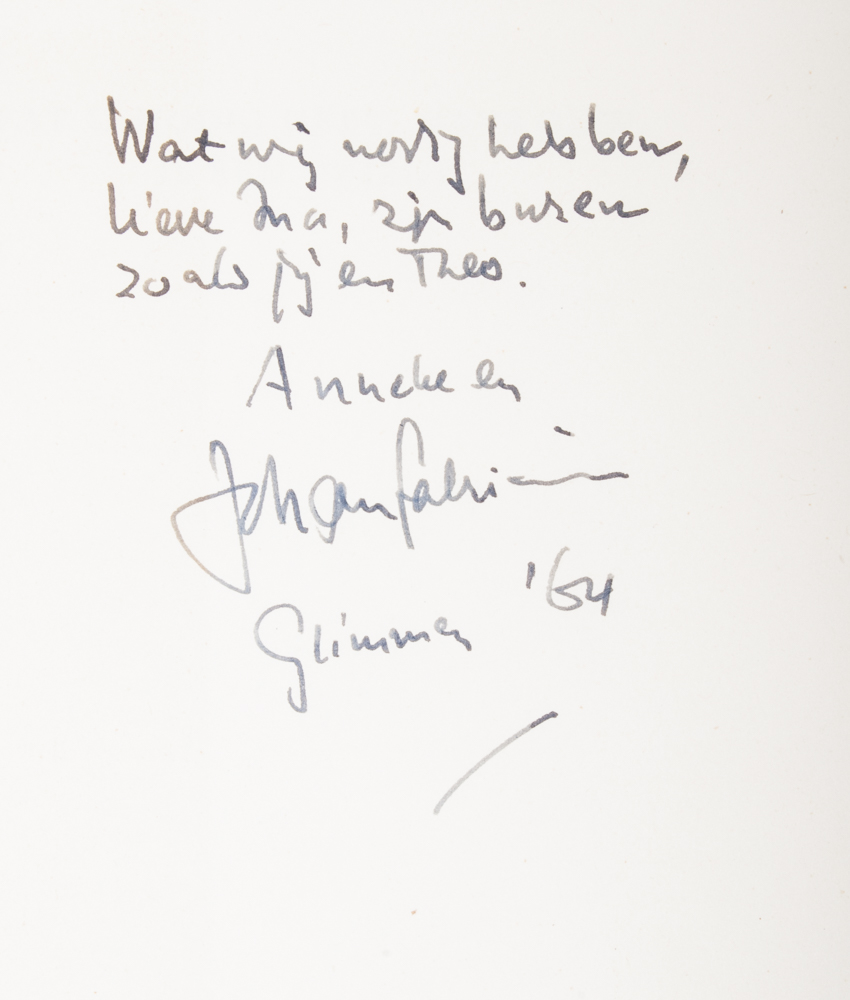 Wat wij nodig hebben,
lieve Ina, zijn buren
zoals jij en Theo.
Anneke en
Johan Fabricius
'64
Glimmen